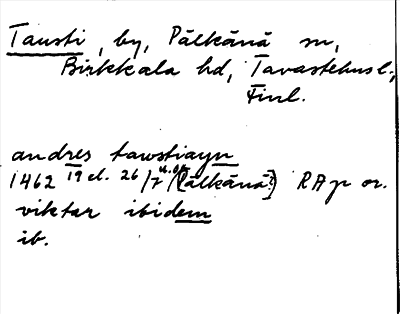 Tausti, by, Pälkänä sn,
Birkkala hd, Tavastehus l.,
Finl.
andres tawstiayn
1462 19 el. 26/7 u.o. (Pälkänä?) RAp or.
viktar ibidem
ib.